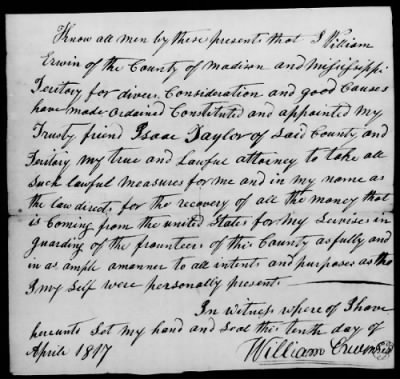 Know all men by these presents that I William
Erwin of the County of Madison and Mississippi
Teritory for divers Consideration and good Causes
have made Ordained Constituted and appointed my
Trusty friend Isaac Taylor of said County and
Teritory my true and Lawful attorney to take all
Such lawful measures for me and in my name as
the law directs for the recovery of all the money that
is Coming from the united States for my Servises in
guarding of the frounteers of this County as fully and
in as ample a manner to all intents and purposes as tho
I my Self were personally present
In Witness where of I have
hereunto Set my hand and Seal this tenth day of
Aprile 1817
William Erwin Seal